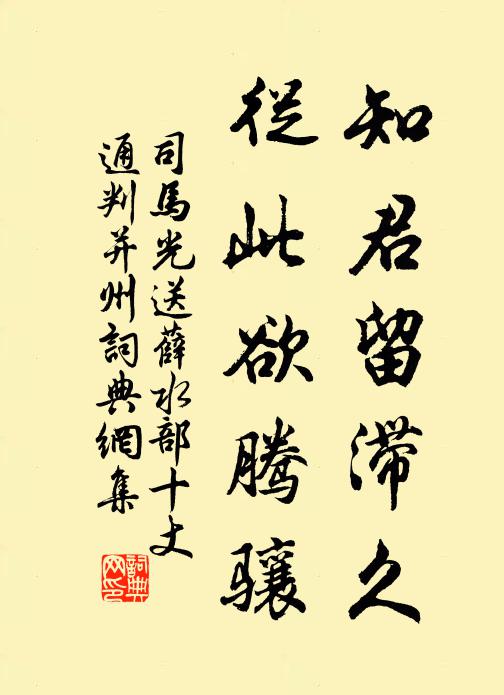 知君留滞久
從此欲腾驤
司馬光送薛水部十丈
通判并州詞典網集
詞典網印